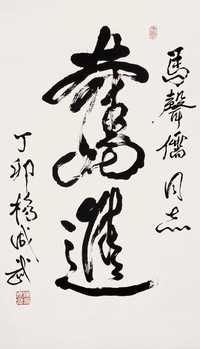 馬聲儒同志
奮進
丁卯楊成武